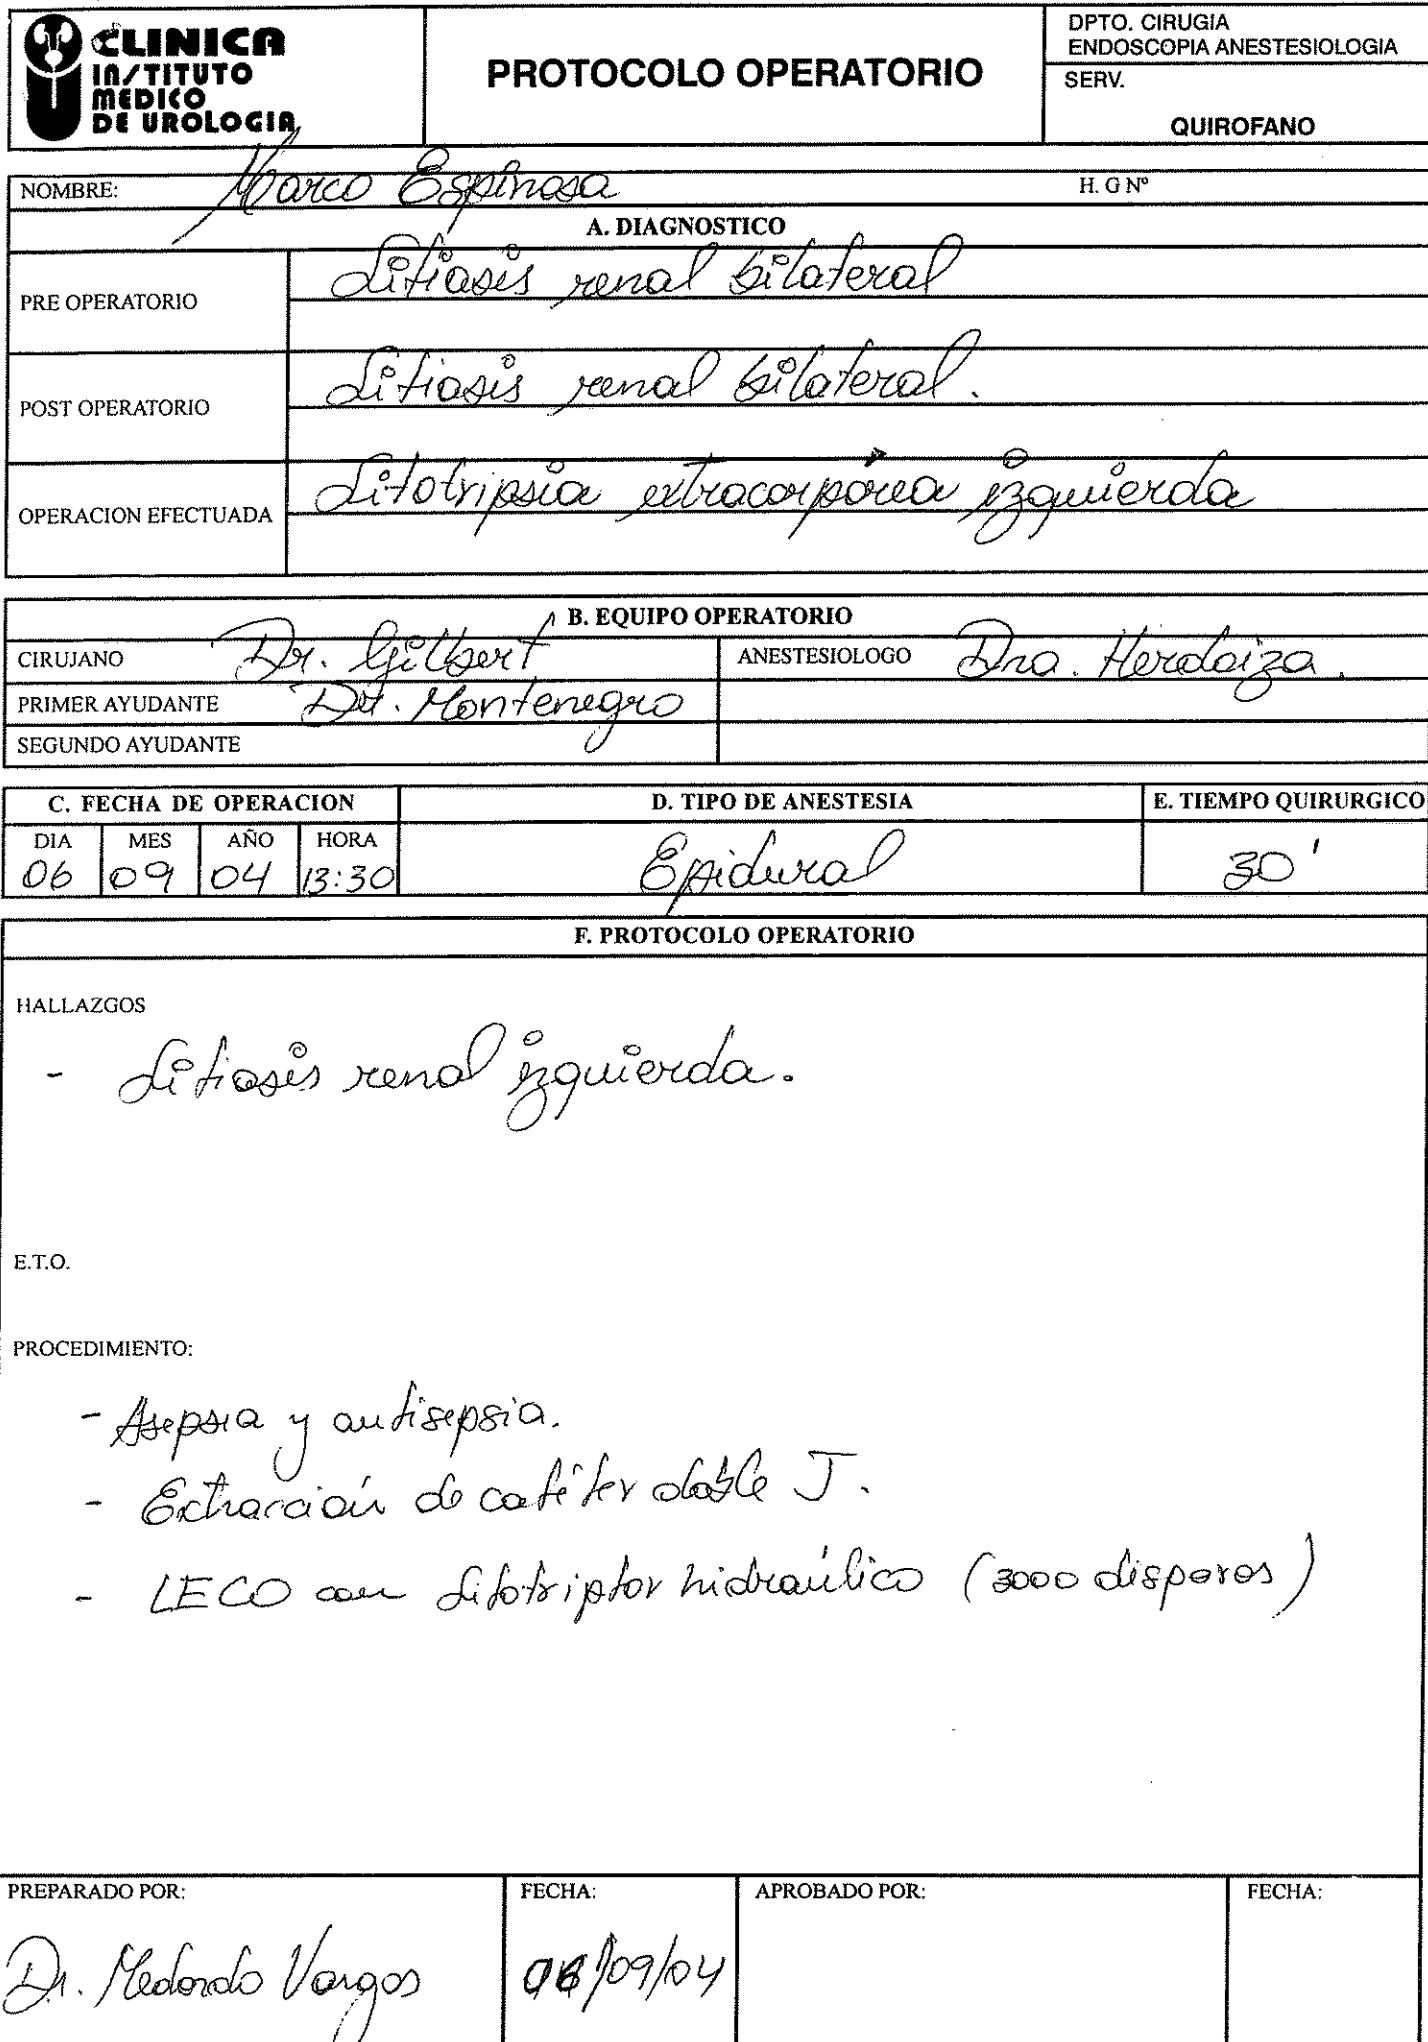 CLINICA
INSTITUTO
MEDICO
DE UROLOGIA
PROTOCOLO OPERATORIO
DPTO. CIRUGIA
ENDOSCOPIA ANESTESIOLOGIA
SERV.
QUIROFANO
NOMBRE: Marco Espinosa H. G Nº
A. DIAGNOSTICO
PRE OPERATORIO Litiasis renal bilateral
POST OPERATORIO Litiasis renal bilateral.
OPERACION EFECTUADA Litotripsia extracorpórea izquierda
B. EQUIPO OPERATORIO
CIRUJANO Dr. Gilbert ANESTESIOLOGO Dra. Herdoiza.
PRIMER AYUDANTE Dr. Montenegro
SEGUNDO AYUDANTE
C. FECHA DE OPERACION D. TIPO DE ANESTESIA E. TIEMPO QUIRURGICO
DIA MES AÑO HORA
06 09 04 13:30 Epidural 30'
F. PROTOCOLO OPERATORIO
HALLAZGOS
- Litiasis renal izquierda.
E.T.O.
PROCEDIMIENTO:
- Asepsia y antisepsia.
- Extracción de catéter doble J.
- LECO con Litotriptor hidraúlico (3000 disparos)
PREPARADO POR: FECHA: APROBADO POR: FECHA:
Dr. Vargas 06/09/04